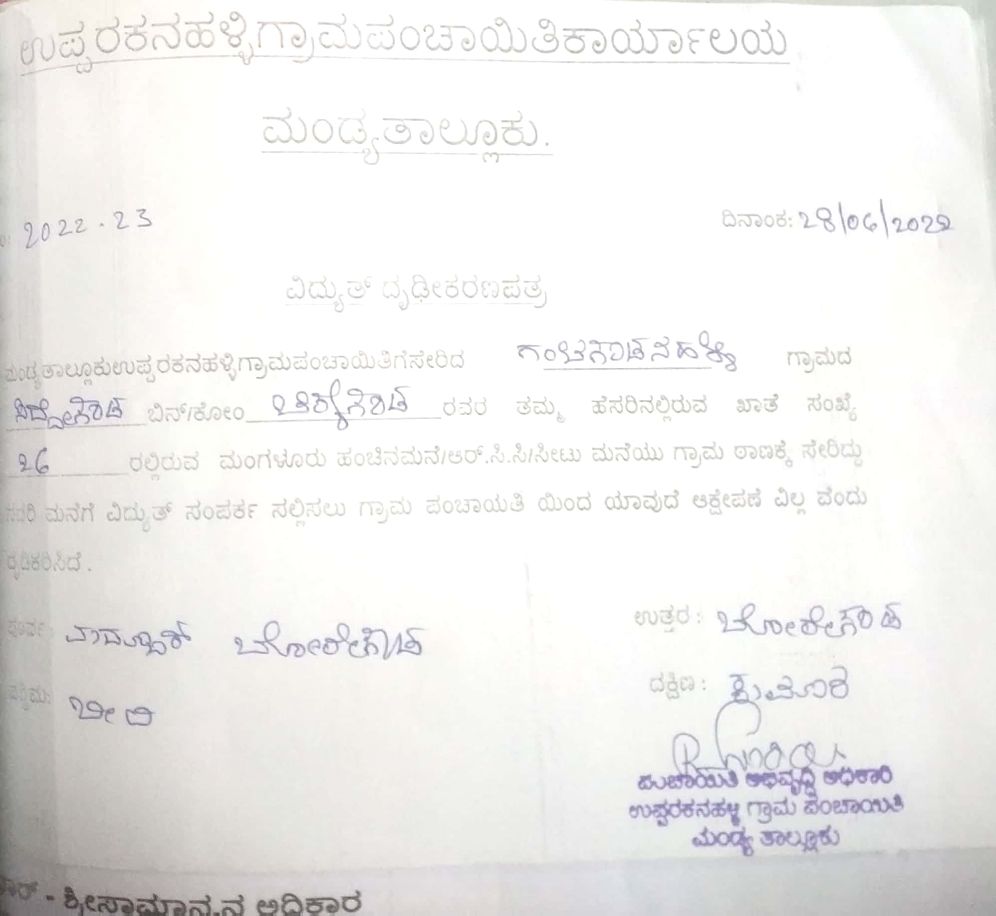 ಉಪ್ಪರಕನಹಳ್ಳಿಗ್ರಾಮಪಂಚಾಯಿತಿಕಾರ್ಯಾಲಯ
ಮಂಡ್ಯತಾಲ್ಲೂಕು.
2022-23 ದಿನಾಂಕ: 28/06/2022
ವಿದ್ಯುತ್ ದೃಢೀಕರಣಪತ್ರ
ಮಂಡ್ಯತಾಲ್ಲೂಕುಉಪ್ಪರಕನಹಳ್ಳಿಗ್ರಾಮಪಂಚಾಯಿತಿಗೆಸೇರಿದ ಗ್ರಾಮದ
ಸಿದ್ದೇಗೌಡ ಬಿನ್/ಕೋಂ ರವರ ತಮ್ಮ ಹೆಸರಿನಲ್ಲಿರುವ ಖಾತೆ ಸಂಖ್ಯೆ
26 ರಲ್ಲಿರುವ ಮಂಗಳೂರು ಹಂಚಿನಮನೆ/ಆರ್.ಸಿ.ಸಿ/ಸೀಟು ಮನೆಯು ಗ್ರಾಮ ಠಾಣಕ್ಕೆ ಸೇರಿದ್ದು
ಸದರಿ ಮನೆಗೆ ವಿದ್ಯುತ್ ಸಂಪರ್ಕ ಸಲ್ಲಿಸಲು ಗ್ರಾಮ ಪಂಚಾಯತಿ ಯಿಂದ ಯಾವುದೆ ಆಕ್ಷೇಪಣೆ ವಿಲ್ಲ ವೆಂದು
ದೃಡಿಕರಿಸಿದೆ.
ಪೂರ್ವ: ಬೋರೇಗೌಡ ಉತ್ತರ: ಬೋರೇಗೌಡ
ಪಶ್ಚಿಮ: ಬೀದಿ ದಕ್ಷಿಣ:
ಪಂಚಾಯಿತಿ ಅಭಿವೃದ್ಧಿ ಅಧಿಕಾರಿ
ಉಪ್ಪರಕನಹಳ್ಳಿ ಗ್ರಾಮ ಪಂಚಾಯಿತಿ
ಮಂಡ್ಯ ತಾಲ್ಲೂಕು
- ಶ್ರೀಸಾಮಾನ್ಯನ ಅಧಿಕಾರ